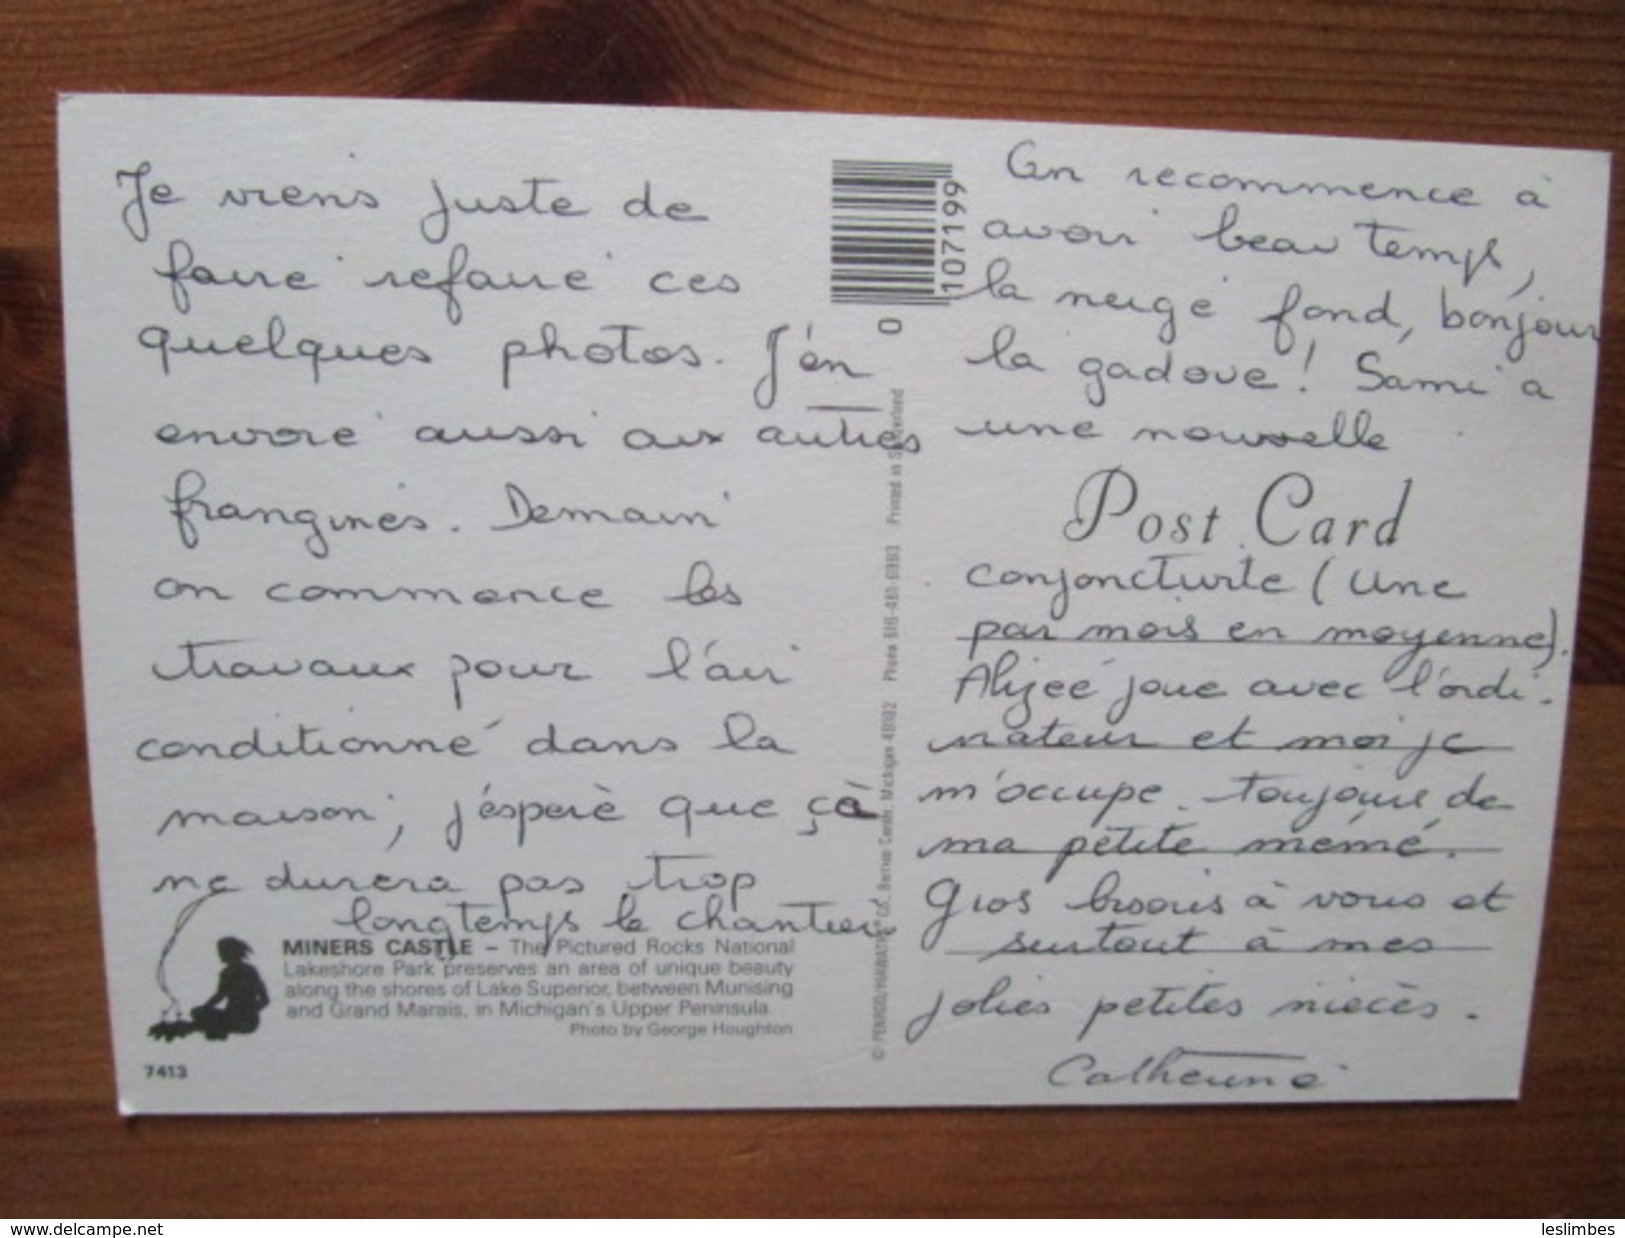 Je viens juste de
faire refaire ces
quelques photos. J'en
envoie aussi aux autres
frangines. Demain
on commence les
travaux pour l'air
conditionné dans la
maison, j'espère que ça
ne durera pas trop
longtemps le chantier
MINERS CASTLE – The Pictured Rocks National
Lakeshore Park preserves an area of unique beauty
along the shores of Lake Superior, between Munising
and Grand Marais, in Michigan's Upper Peninsula.
Photo by George Houghton
7413
0
107199
© PENROD/HIAWATHA Co., Berrien Center, Michigan 49102 Phone 616-461-6993 Printed in Switzerland
On recommence à
avoir beau temps,
la neige fond, bonjour
la gadoue! Sami a
une nouvelle
Post Card
conjonctivite (une
par mois en moyenne).
Alizée joue avec l'ordi-
nateur et moi je
m'occupe toujours de
ma petite mémé.
Gros bisous à vous et
surtout à mes
jolies petites nièces.
Catherine
www.delcampe.net
leslimbes